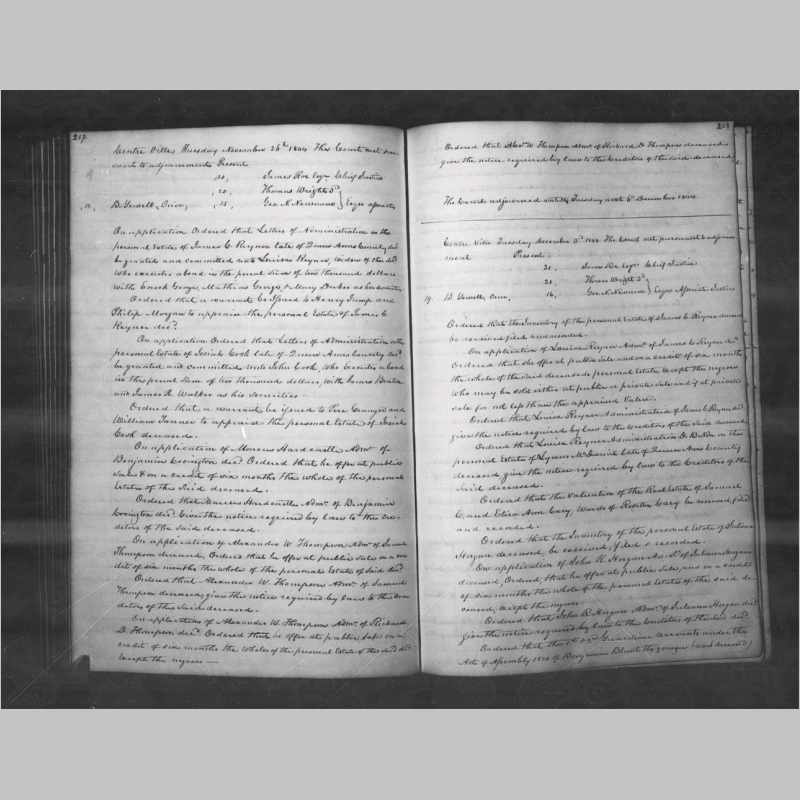 217.
Centre Ville Tuesday November 26th 1844 This Court met pur=
suant to adjournment Present
20, James Roe Esqr Chief Justice
20, Thomas Wright 3d
D. Fewell, Crier, 18, Geo. N. Newnam } Esqrs Associates
On application Ordered that Letters of Administration on the
personal Estate of James C. Reyner late of Queen Anns County decd
be granted and committed unto Louisa Reyner, widow of the decd
who executes a bond in the penal Sum of two thousand dollars
with Enoch George, Matthias George & as Securities
Ordered that a warrant be issued to Henry Jump and
Philip Morgan to appraise the personal Estate of James C
Reyner decd.
On application Ordered that Letters of Administration on the
personal Estate of Josiah Cosk late of Queen Anns County decd
be granted and committed unto John Cosk, who executes a bond
in the penal Sum of two thousand dollars, with James
and James R. Walker as his securities
Ordered that a warrant be issued to and
William Turner to appraise the personal Estate of Josiah
Cosk deceased.
On application of Marcus Hardcastle Admr of
Benjamin Covington decd Ordered that he offer at public
Sale & on a credit of six months the whole of the personal
Estate of the Said deceased.
Ordered that Marcus Hardcastle Admr of Benjamin
Covington decd Give the notice required by law to the cre=
ditors of the Said deceased.
On application of Alexander W. Thompson Admr of Samuel
Thompson deceased, Ordered that he offer at public Sale on a cre
dit of six months the whole of the personal Estate of Said decd
Ordered that Alexander W. Thompson Admr of Samuel
Thompson deceased give the notice required by law to the cre
ditors of the Said deceased.
On application of Alexander W. Thompson Admr of Richard
D. Thompson decd Ordered that he offer at public Sale on a
credit of six months the whole of the personal Estate of the said decd
except the negroes —
218
Ordered that Alexr W. Thompson Admr of Richard D. Thompson deceased
give the notice required by law to the Creditors of the said deceased
The Court adjourned until Tuesday next 3d December 1844
Centre Ville Tuesday December 3d 1844 The Court met pursuant to adjourn
ment Present
21, James Roe Esqr Chief Justice
21, Thomas Wright 3d
19 D. Fewell, Crier, 16, Geo. N. Newnam } Esqrs Associate Justices
Ordered that the Inventory of the personal Estate of James C. Reyner deceased
be received filed and recorded.
On application of Louisa Reyner Admx of James C. Reyner decd
Ordered that she offer at public Sale and on a credit of six months
the whole of the said deceaseds personal Estate, except the negroes
who may be sold either at public or private sale and if at private
sale for not less than the appraised Value.
Ordered that Louisa Reyner Administratrix of James C. Reyner decd
give the notice required by law to the creditors of the said deceased
Ordered that Louisa Reyner Administratrix D. B. Non on the
personal Estate of late of Queen Anns County
deceased give the notice required by law to the Creditors of the
Said deceased.
Ordered that the Valuation of the Real Estate of Samuel
C. and Eliza Ann Cary, Wards of Cary be received, filed
and recorded.
Ordered that the Inventory of the personal Estate of Juliana
Hazen deceased, be received, filed & recorded.
On application of John R. Hazen Admr of Juliana Hazen
deceased, Ordered, that he offer at public Sale, and on a credit
of six months the whole of the personal Estate of the said de
ceased, except the negroes
Ordered that John R. Hazen Admr of Juliana Hazen decd
give the notice required by law to the Creditors of the said decd.
Ordered that the Guardians accounts under the
Acts of Assembly